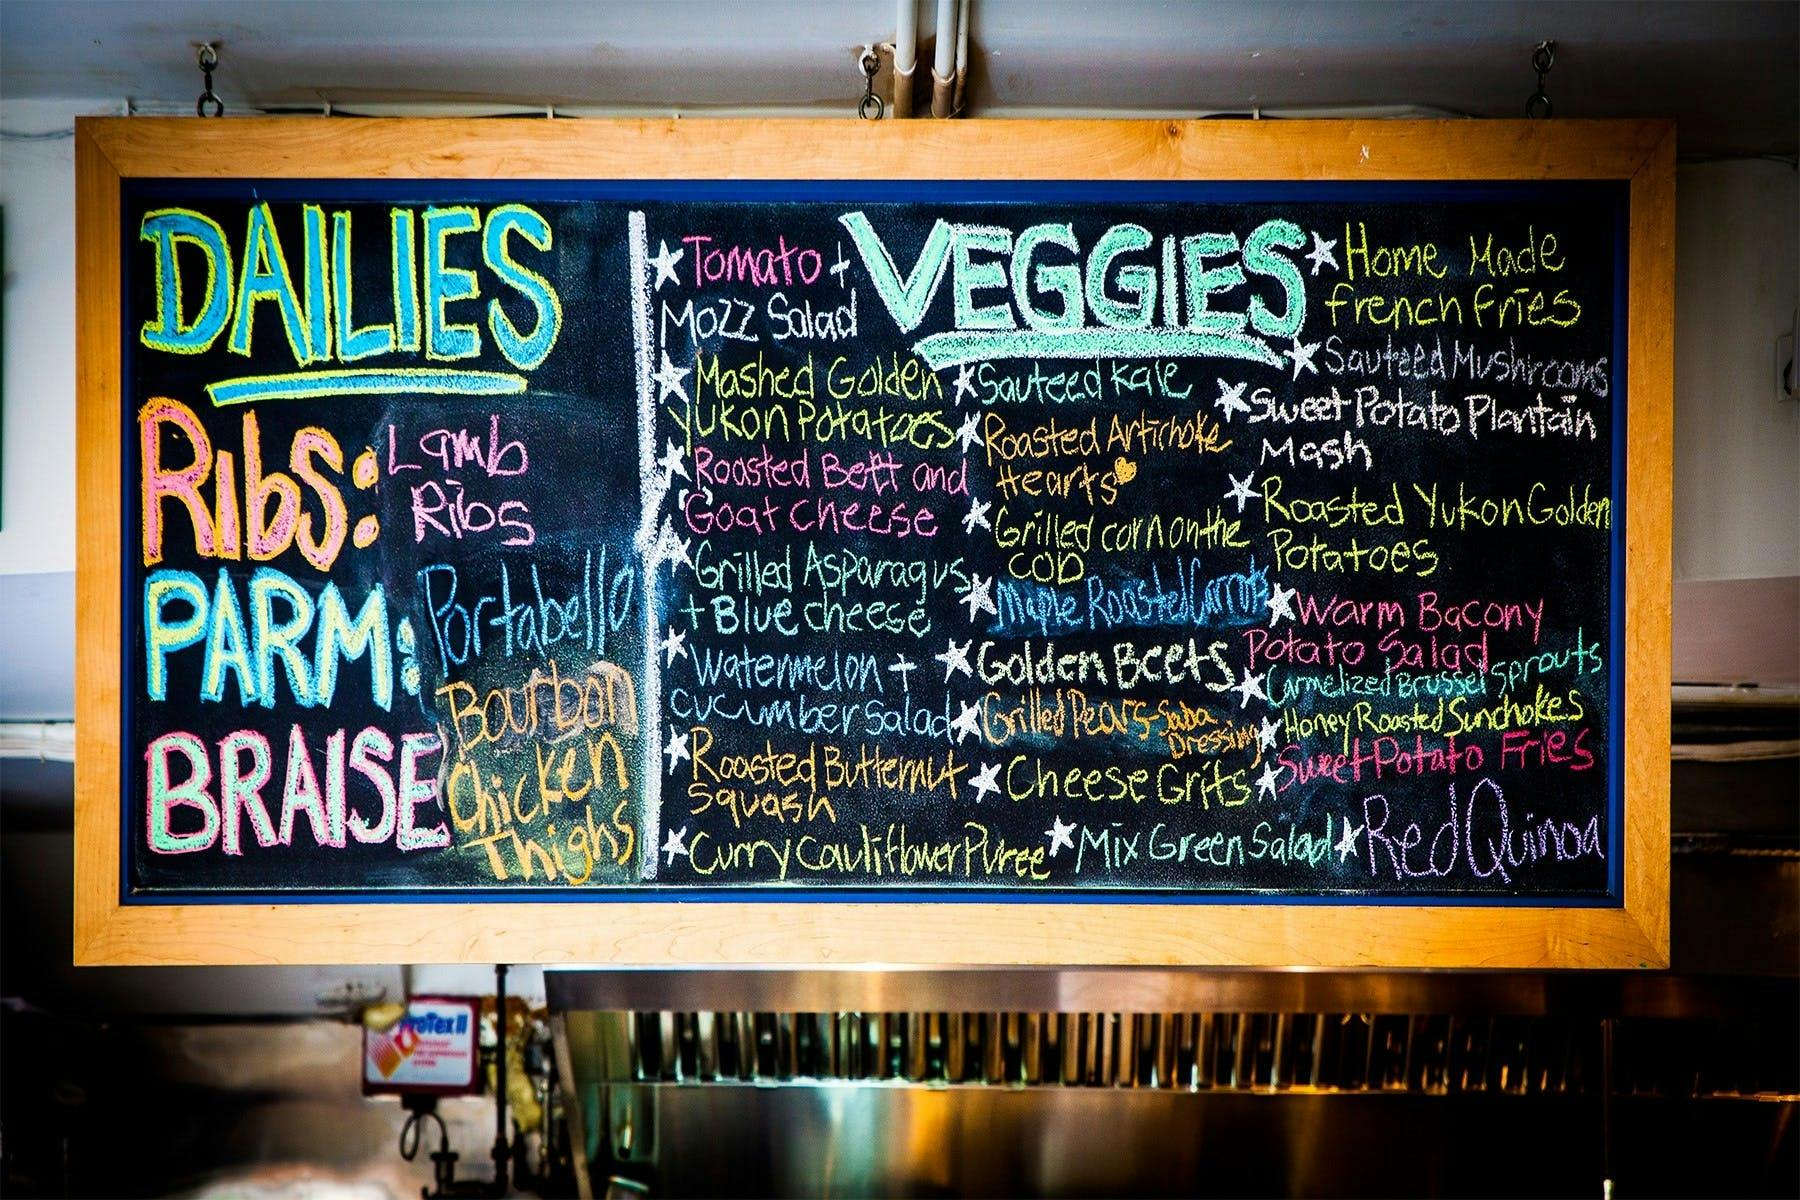 DAILIES
Ribs: Lamb
Ribs
PARM: Portabello
BRAISE Bourbon
Chicken
Thighs
VEGGIES
Tomato +
Mozz Salad
Mashed Golden
Yukon Potatoes
Roasted Beet and
Goat cheese
Grilled Asparagus
+ Blue cheese
Watermelon +
cucumber salad
Roasted Butternut
Squash
Curry Cauliflower Puree
Sauteed Kale
Roasted Artichoke
Hearts
Grilled corn on the
COD
Maple Roasted Carrots
Golden Beets
Grilled Pears-Saba
Dressing
Cheese Grits
Mix Green Salad
Home Made
french fries
Sauteed Mushrooms
Sweet Potato Plantain
Mash
Roasted Yukon Golden
Potatoes
Warm Bacony
Potato Salad
Carmelized Brussel Sprouts
Honey Roasted Sunchokes
Sweet Potato Fries
Red Quinoa